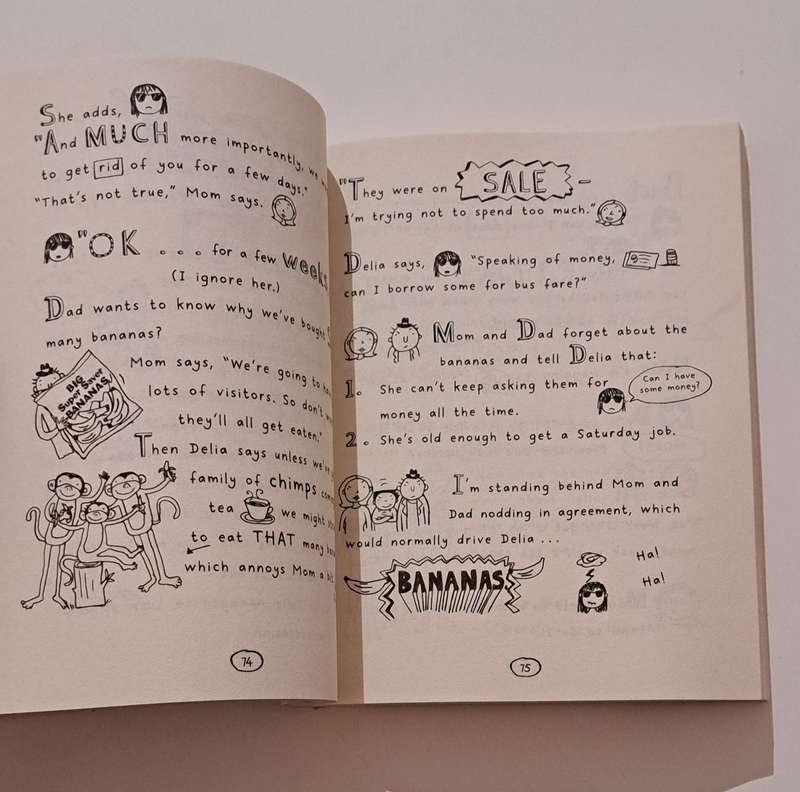 She adds,
"And MUCH more importantly, we
to get rid of you for a few days."
"That's not true," Mom says.
"OK . . . for a few weeks
(I ignore her.)
Dad wants to know why we've bought
many bananas?
BIG
Super Saver
BANANAS
Mom says, "We're going to have
lots of visitors. So don't
they'll all get eaten."
Then Delia says unless we're
family of chimps
tea we might
to eat THAT many
which annoys Mom a bit.
74
"They were on SALE –
I'm trying not to spend too much."
Delia says, "Speaking of money,
can I borrow some for bus fare?"
Mom and Dad forget about the
bananas and tell Delia that:
1. She can't keep asking them for
money all the time.
Can I have
some money?
2. She's old enough to get a Saturday job.
I'm standing behind Mom and
Dad nodding in agreement, which
would normally drive Delia ...
BANANAS.
Ha!
Ha!
75